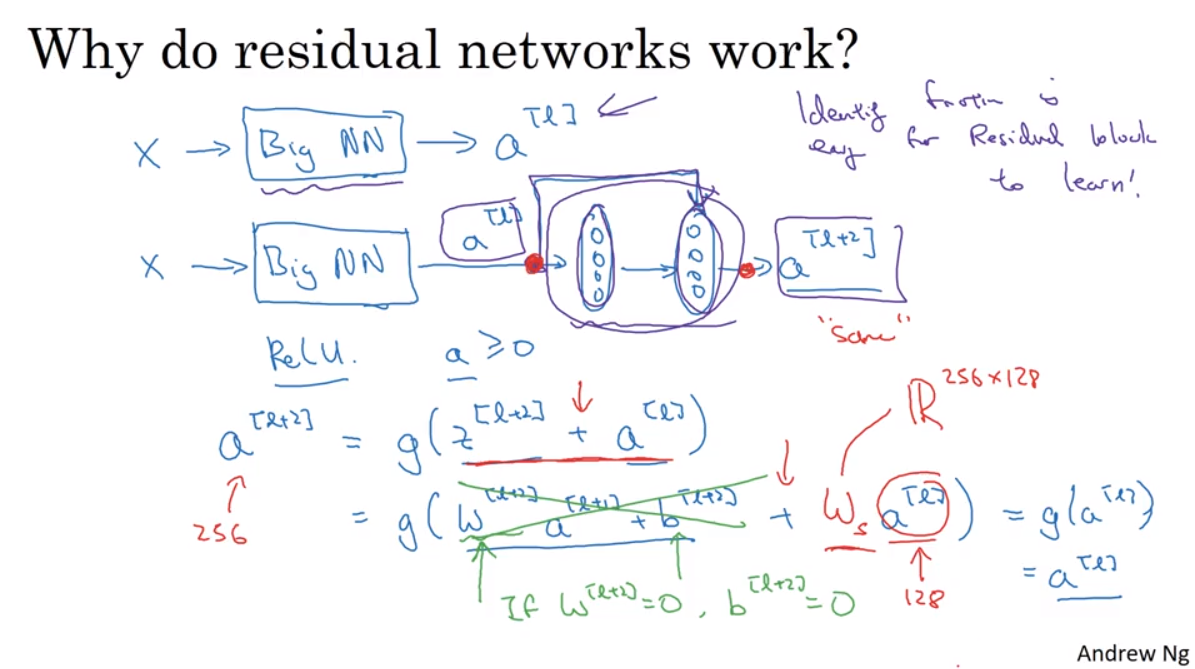 Why do residual networks work?
X → Big NN → a^[l]
Identity function is
easy for Residual block
to learn!
X → Big NN → a^[l] → a^[l+2]
"same"
ReLU. a ≥ 0
R^256×128
a^[l+2] = g(z^[l+2] + a^[l])
256
= g(W^[l+2] a^[l+1] + b^[l+2] + W_s a^[l]) = g(a^[l])
= a^[l]
If W^[l+2] = 0, b^[l+2] = 0
128
Andrew Ng